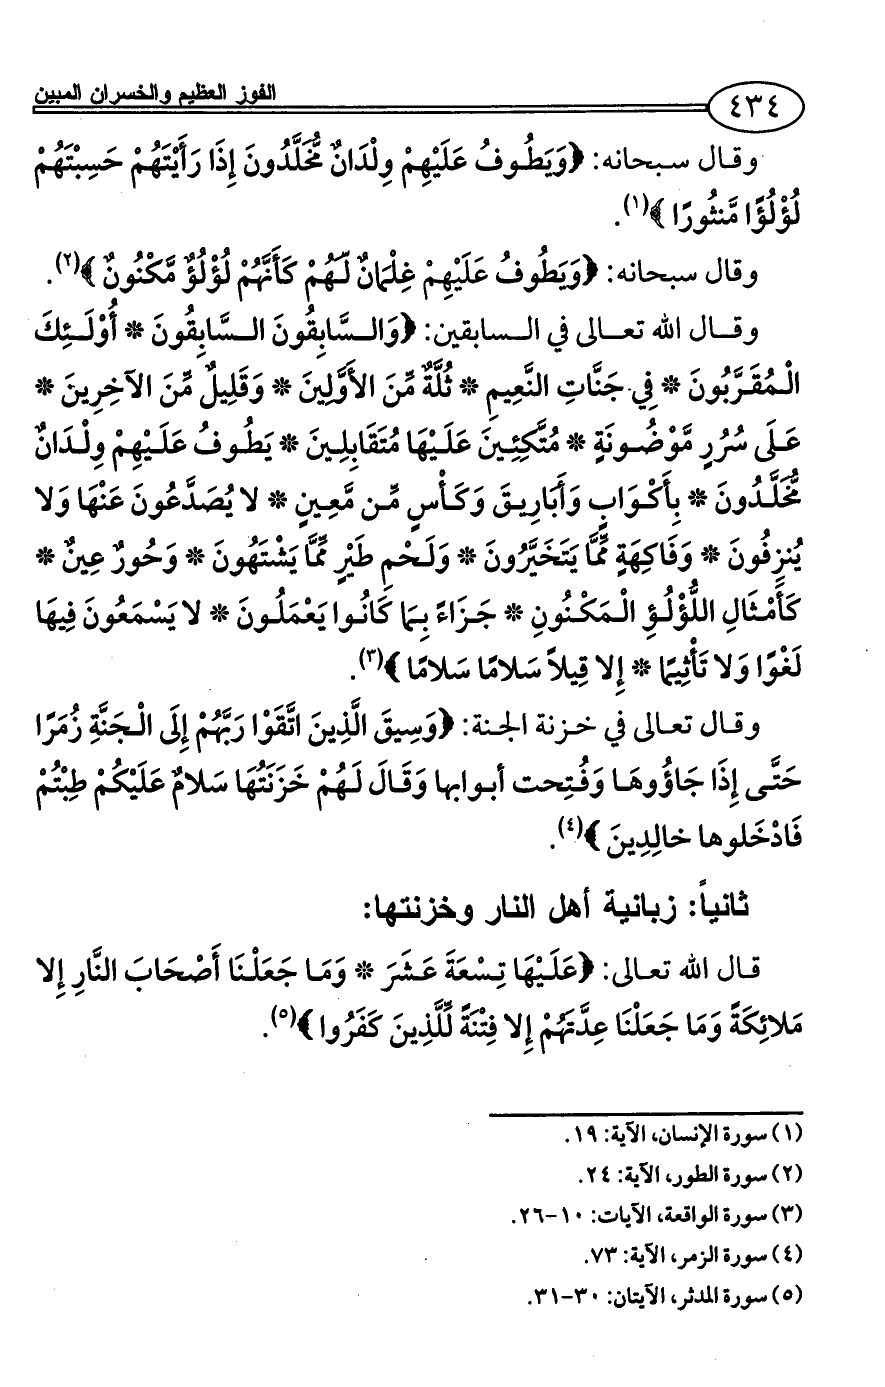 ٤٣٤ الفوز العظيم والخسران المبين
وقال سبحانه: ﴿وَيَطُوفُ عَلَيْهِمْ وِلْدَانٌ مُّخَلَّدُونَ إِذَا رَأَيْتَهُمْ حَسِبْتَهُمْ
لُؤْلُؤًا مَّنثُورًا﴾(١).
وقال سبحانه: ﴿وَيَطُوفُ عَلَيْهِمْ غِلْمَانٌ لَّهُمْ كَأَنَّهُمْ لُؤْلُؤٌ مَّكْنُونٌ﴾(٢).
وقال الله تعالى في السابقين: ﴿وَالسَّابِقُونَ السَّابِقُونَ * أُوْلَئِكَ
الْمُقَرَّبُونَ * فِي جَنَّاتِ النَّعِيمِ * ثُلَّةٌ مِّنَ الأَوَّلِينَ * وَقَلِيلٌ مِّنَ الآخِرِينَ *
عَلَى سُرُرٍ مَّوْضُونَةٍ * مُتَّكِئِينَ عَلَيْهَا مُتَقَابِلِينَ * يَطُوفُ عَلَيْهِمْ وِلْدَانٌ
مُّخَلَّدُونَ * بِأَكْوَابٍ وَأَبَارِيقَ وَكَأْسٍ مِّن مَّعِينٍ * لا يُصَدَّعُونَ عَنْهَا وَلا
يُنزِفُونَ * وَفَاكِهَةٍ مِّمَّا يَتَخَيَّرُونَ * وَلَحْمِ طَيْرٍ مِّمَّا يَشْتَهُونَ * وَحُورٌ عِينٌ *
كَأَمْثَالِ اللُّؤْلُؤِ الْمَكْنُونِ * جَزَاءً بِمَا كَانُوا يَعْمَلُونَ * لا يَسْمَعُونَ فِيهَا
لَغْوًا وَلا تَأْثِيمًا * إِلا قِيلاً سَلامًا سَلامًا﴾(٣).
وقال تعالى في خزنة الجنة: ﴿وَسِيقَ الَّذِينَ اتَّقَوْا رَبَّهُمْ إِلَى الْجَنَّةِ زُمَرًا
حَتَّى إِذَا جَاؤُوهَا وَفُتِحت أبوابها وَقَالَ لَهُمْ خَزَنَتُهَا سَلامٌ عَلَيْكُمْ طِبْتُمْ
فَادْخَلوها خالِدِينَ﴾(٤).
ثانياً: زبانية أهل النار وخزنتها:
قال الله تعالى: ﴿عَلَيْهَا تِسْعَةَ عَشَرَ * وَمَا جَعَلْنَا أَصْحَابَ النَّارِ إِلا
مَلائِكَةً وَمَا جَعَلْنَا عِدَّتَهُمْ إِلا فِتْنَةً لِّلَّذِينَ كَفَرُوا﴾(٥).
(١) سورة الإنسان، الآية: ١٩.
(٢) سورة الطور، الآية: ٢٤.
(٣) سورة الواقعة، الآيات: ١٠-٢٦.
(٤) سورة الزمر، الآية: ٧٣.
(٥) سورة المدثر، الآيتان: ٣٠-٣١.